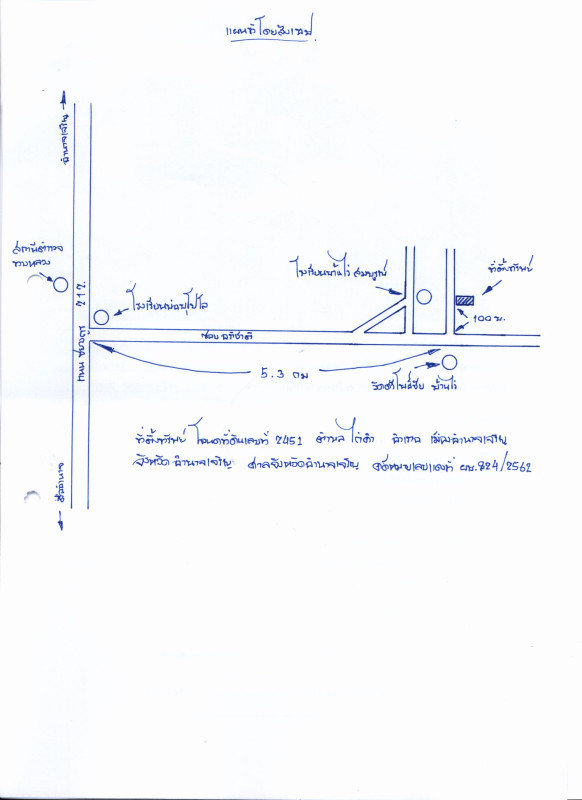 แผนที่โดยสังเขป
อำนาจเจริญ
สถานีตำรวจ
ถนน ชยางกูร 212.
โรงเรียนบ้านไร่ สมบูรณ์
ที่ตั้งทรัพย์
100 ม.
5.3 กม
วัดศรีโพธิ์ชัย บ้านไร่
ที่ตั้งทรัพย์ โฉนดที่ดินเลขที่ 2451 ตำบล ไก่คำ อำเภอ เมืองอำนาจเจริญ
จังหวัด อำนาจเจริญ ศาลจังหวัดอำนาจเจริญ คดีหมายเลขแดงที่ ผบ.824/2562